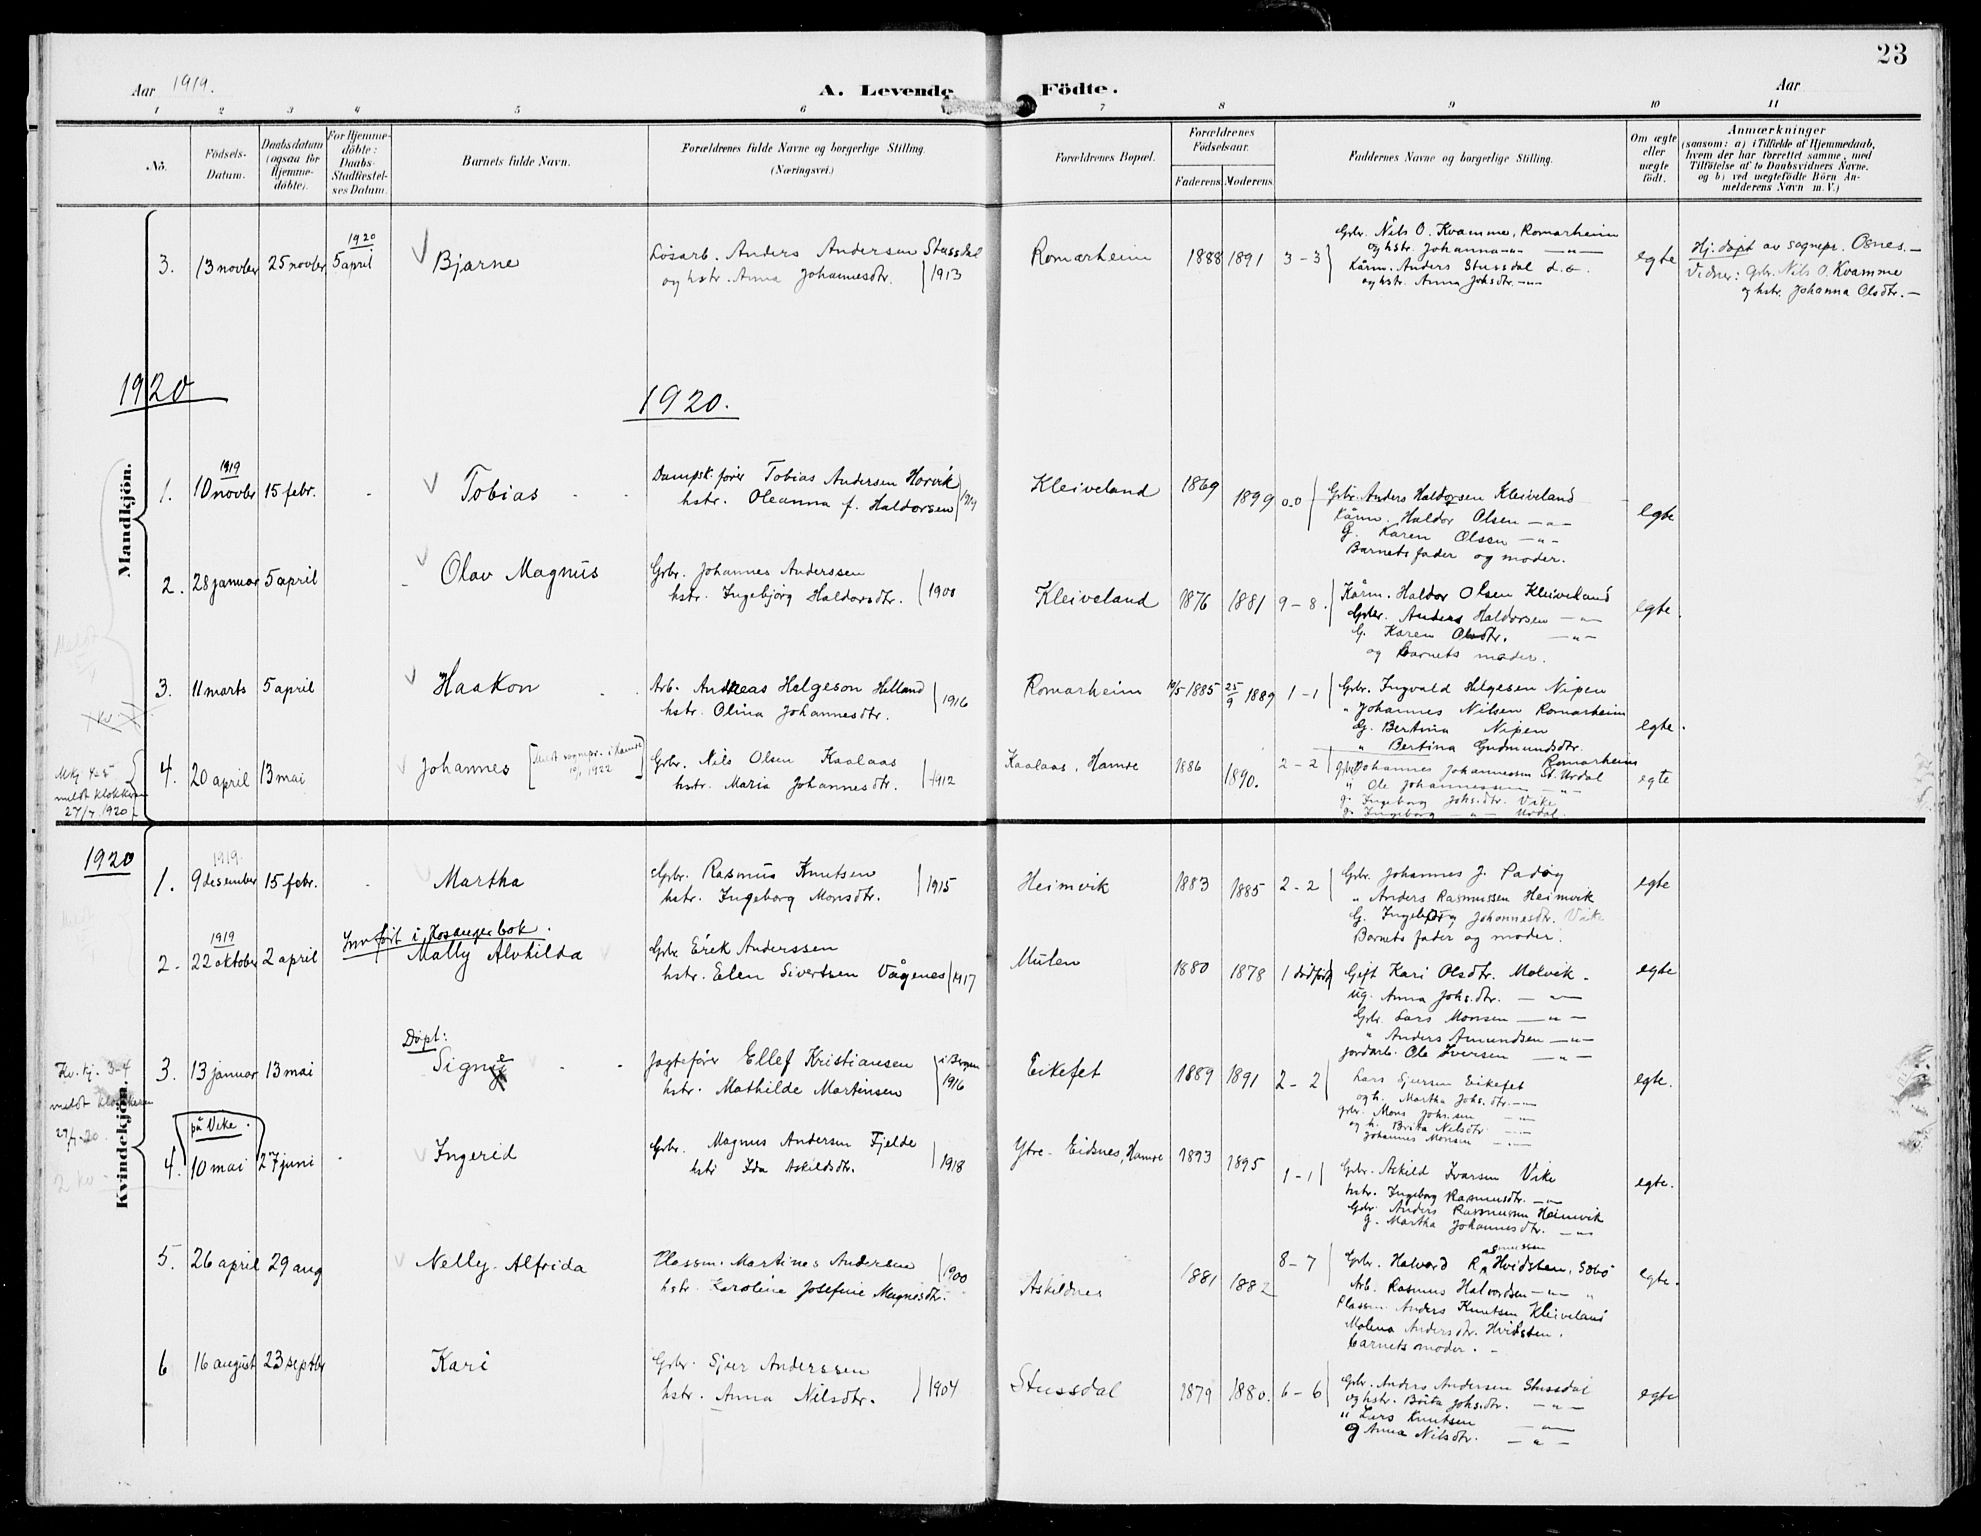 23
Aar 1919.
A. Levende Födte.
Aar
1 2 3 4 5 6 7 8 9 10 11
No.
Födsels-Datum.
Daabsdatum (ogsaa for Hjemme-döbte).
For Hjemme-döbte: Daabs-Stadfæstel-ses Datum.
Barnets fulde Navn.
Forældrenes fulde Navne og borgerlige Stilling. (Næringsvei.)
Forældrenes Bopæl.
Forældrenes Födselsaar.
Faderens Moderens
Faddernes Navne og borgerlige Stilling.
Om ægte eller uægte födt.
Anmærkninger
(saasom: a) i Tilfælde af Hjemmedaab,
hvem der har forrettet samme, med
Tilföielse af to Daabsvidners Navne.
og b) ved uægtefödte Börn An-
melderens Navn m.V.)
3. 13 novber 25 novber 1920 5 april Bjarne
Løsarb. Anders Andersen Stussdal
og hstr. Anna Johannesdtr. 1913
Romarheim 1888 1891 3-3
Gbr. Nils O. Kvamme, Romarheim
og hstr. Johanna -"- -"-
Kårm. Anders Stussdal d.o.
og hstr. Anna Johsdtr. -"-
egte
Hj. døpt av sognepr. Osnes.-
Vidner: Gbr. Nils O. Kvamme
og hstr. Johanna Olsdtr.-
1920
1920.
Mandkjön.
1. 1919 10 novbr 15 febr. Tobias
Dampsk. fører Tobias Andersen Horvik
hstr. Oleanna f. Haldorsen
Kleiveland 1869 1899 0.0
Gbr. Anders Haldorsen Kleiveland
Kårm. Haldor Olsen -"-
G. Karen Olsen -"-
Barnets fader og moder.
egte
2. 28 januar 5 april Olav Magnus
Gbr. Johannes Anderssen
hstr. Ingebjørg Haldorsdtr. 1900
Kleiveland 1876 1881 9-8.
Kårm. Haldor Olsen Kleiveland
Gbr. Anders Haldorsen -"-
G. Karen Olsdtr. -"-
og Barnets moder.
egte.
3. 11 marts 5 april Haakon
Arb. Andreas Helgeson Helland
hstr. Olina Johannesdtr. 1916
Romarheim 10/5 1885 25/9 1889 1-1
Gbr. Ingvald Helgesen Nipen
" Johannes Nilsen Romarheim
G. Bertina Nipen
" Bertina Gudmundsdtr. Romarheim
egte.
Mkj 4-5
meldt klokkeren
27/7 1920
4. 20 april 13 mai Johannes [Meldt sognepr. i Hamre 1922]
Gbr. Nils Olsen Kaalaas
hstr. Maria Johannesdtr. 1912
Kaalaas, Hamre 1886 1890. 2-2
Gbr. Johannes Johannessen St. Urdal
" Ole Johannessen -"-
g. Ingeborg Johs.dtr. Vike
g. Ingeborg -"- Urdal.
egte
1920
Kvindekjön.
1. 1919. 9 desember 15 febr. Martha
Gbr. Rasmus Knutsen
hstr. Ingeborg Monsdtr. 1915
Heimvik 1883 1885 2-2
Gbr. Johannes J. Padøy
" Anders Rasmussen Heimvik
G. Ingeborg Johannesdtr. Vike
Barnets fader og moder.
egte
2. 1919 22 oktober 2 april Innført i Hosangerbok. Mally Alvhilda
Gbr. Erik Anderssen
hstr. Elen Sivertsen Vågenes 1917
Mulen 1880 1878 1 dødfødt
Gift Kari Olsdtr. Molvik -
ug. Anna Johs.dtr. -"-
Gbr. Lars Monsen -"-
" Anders Amundsen -"-
jordarb. Ole Iversen -"-
egte
Kv.kj. 3-4
meldt klokkeren
27/7-20.
3. 13 januar 13 mai Døpt: Signe
Jagtefører Ellef Kristiansen
hstr. Mathilde Martinsen i Bergen 1916
Eikefet 1889 1891 2-2
Lars Sjursen Eikefet
og h. Martha Johs.dtr. -"-
gbr. Mons Johs.sen -"-
og h. Brita Nilsdtr -"-
Johannes Monsen -"-
egte.
på Vike.
4. 10 mai 27 juni Ingerid
Gbr. Magnus Andersen Fjelde
hstr Ida Askildsdtr. 1918
Ytre-Eidsnes, Hamre 1893 1895 1-1
Gbr. Askild Ivarsen Vike
hstr. Ingeborg Rasmusdtr. -"-
Gbr. Anders Rasmussen Heimvik
g. Martha Johannesdtr. -"-
egte.
5. 26 april 29 aug Nelly Alfrida
Plassm. Martines Andersen
hstr. Karoline Josefine Magnesdtr. 1900
Askildnes 1881 1882 8-7
Gbr. Halvard Rasmussen Hvidsten, Sæbø
Arb. Rasmus Halvordsen -"- "
Plassm. Anders Knutsen Kleiveland
Malena Andersdtr. Hvidsten.
Barnets moder.
egte.
6 16 august 23 septbr Kari
Gbr. Sjur Anderssen
hstr. Anna Nilsdtr. 1904
Stussdal 1879 1880. 6-6
Gbr. Anders Andersen Stussdal
og hstr. Brita Johs.dtr. -"-
" Lars Knutsen -"-
g Anna Nilsdtr. -"-
egte